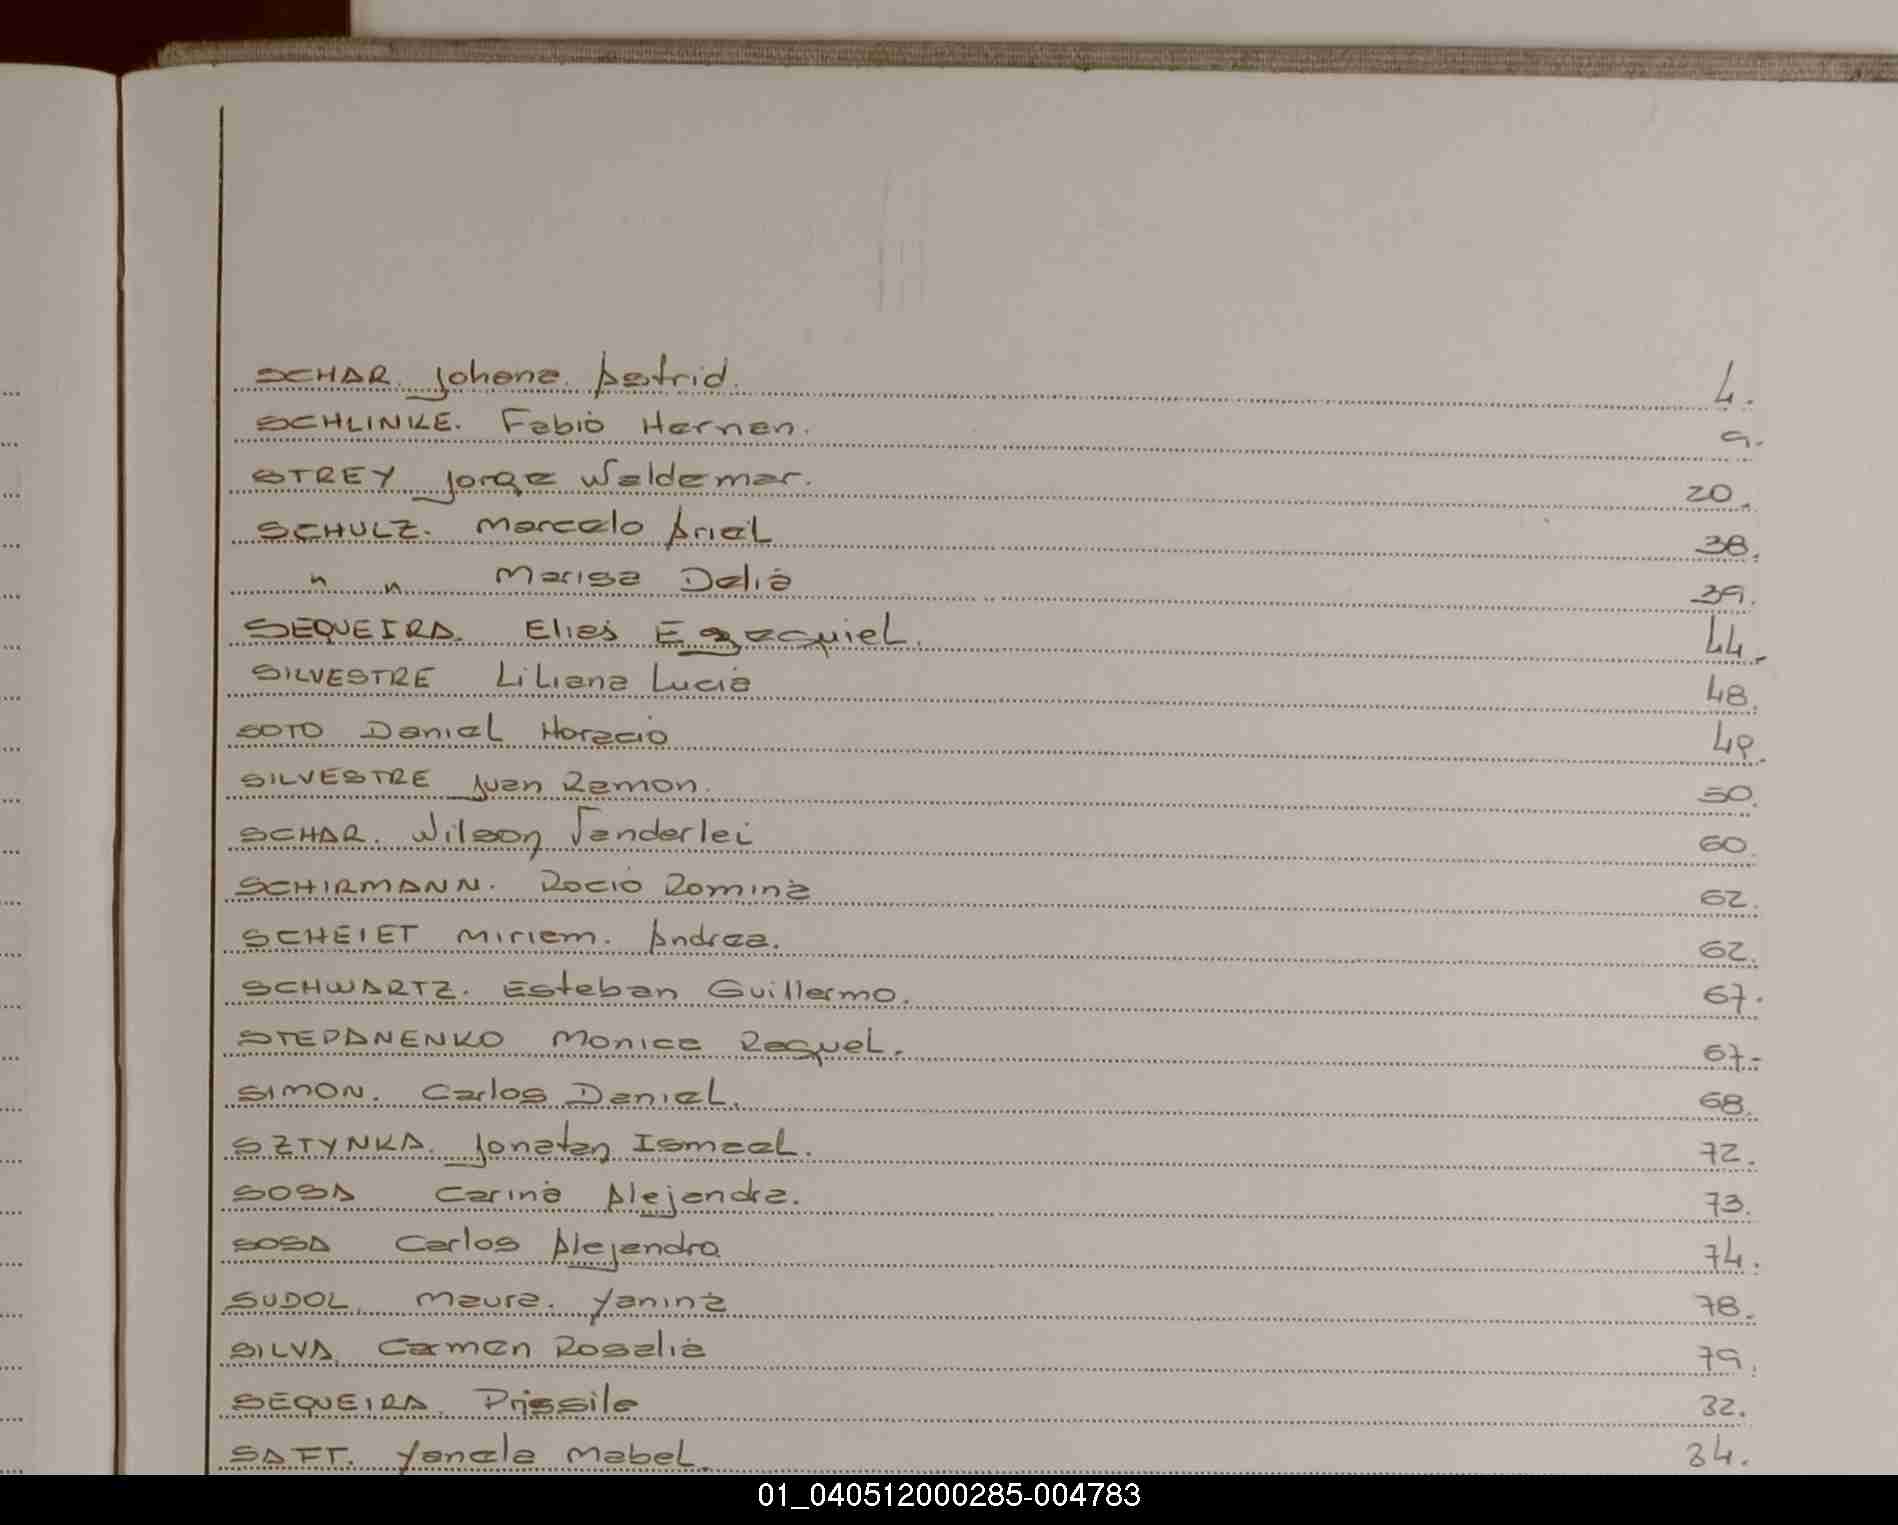 SCHAR. Johana. Astrid. 4.
SCHLINKE. Fabio Hernan. 9.
STREY Jorge Waldemar. 20.
SCHULZ. Marcelo Ariel 38.
" " Marisa Delia 39.
SEQUEIRA. Elias Ezequiel. 44.
SILVESTRE Liliana Lucia 48.
SOTO Daniel Horacio 49.
SILVESTRE Juan Ramon. 50.
SCHAR. Wilson Vanderlei 60.
SCHIRMANN. Rocio Romina 62.
SCHEIET Miriam. Andrea. 62.
SCHWARTZ. Esteban Guillermo. 67.
STEPANENKO Monica Raquel. 67.
SIMON. Carlos Daniel. 68.
SZTYNKA. Jonatan Ismael. 72.
SOSA Carina Alejandra. 73.
SOSA Carlos Alejandro 74.
SUDOL. Maura. Yanina 78.
SILVA. Carmen Rosalia 79.
SEQUEIRA. Prissila 32.
SAFT. Yanela Mabel. 34.
01_040512000285-004783